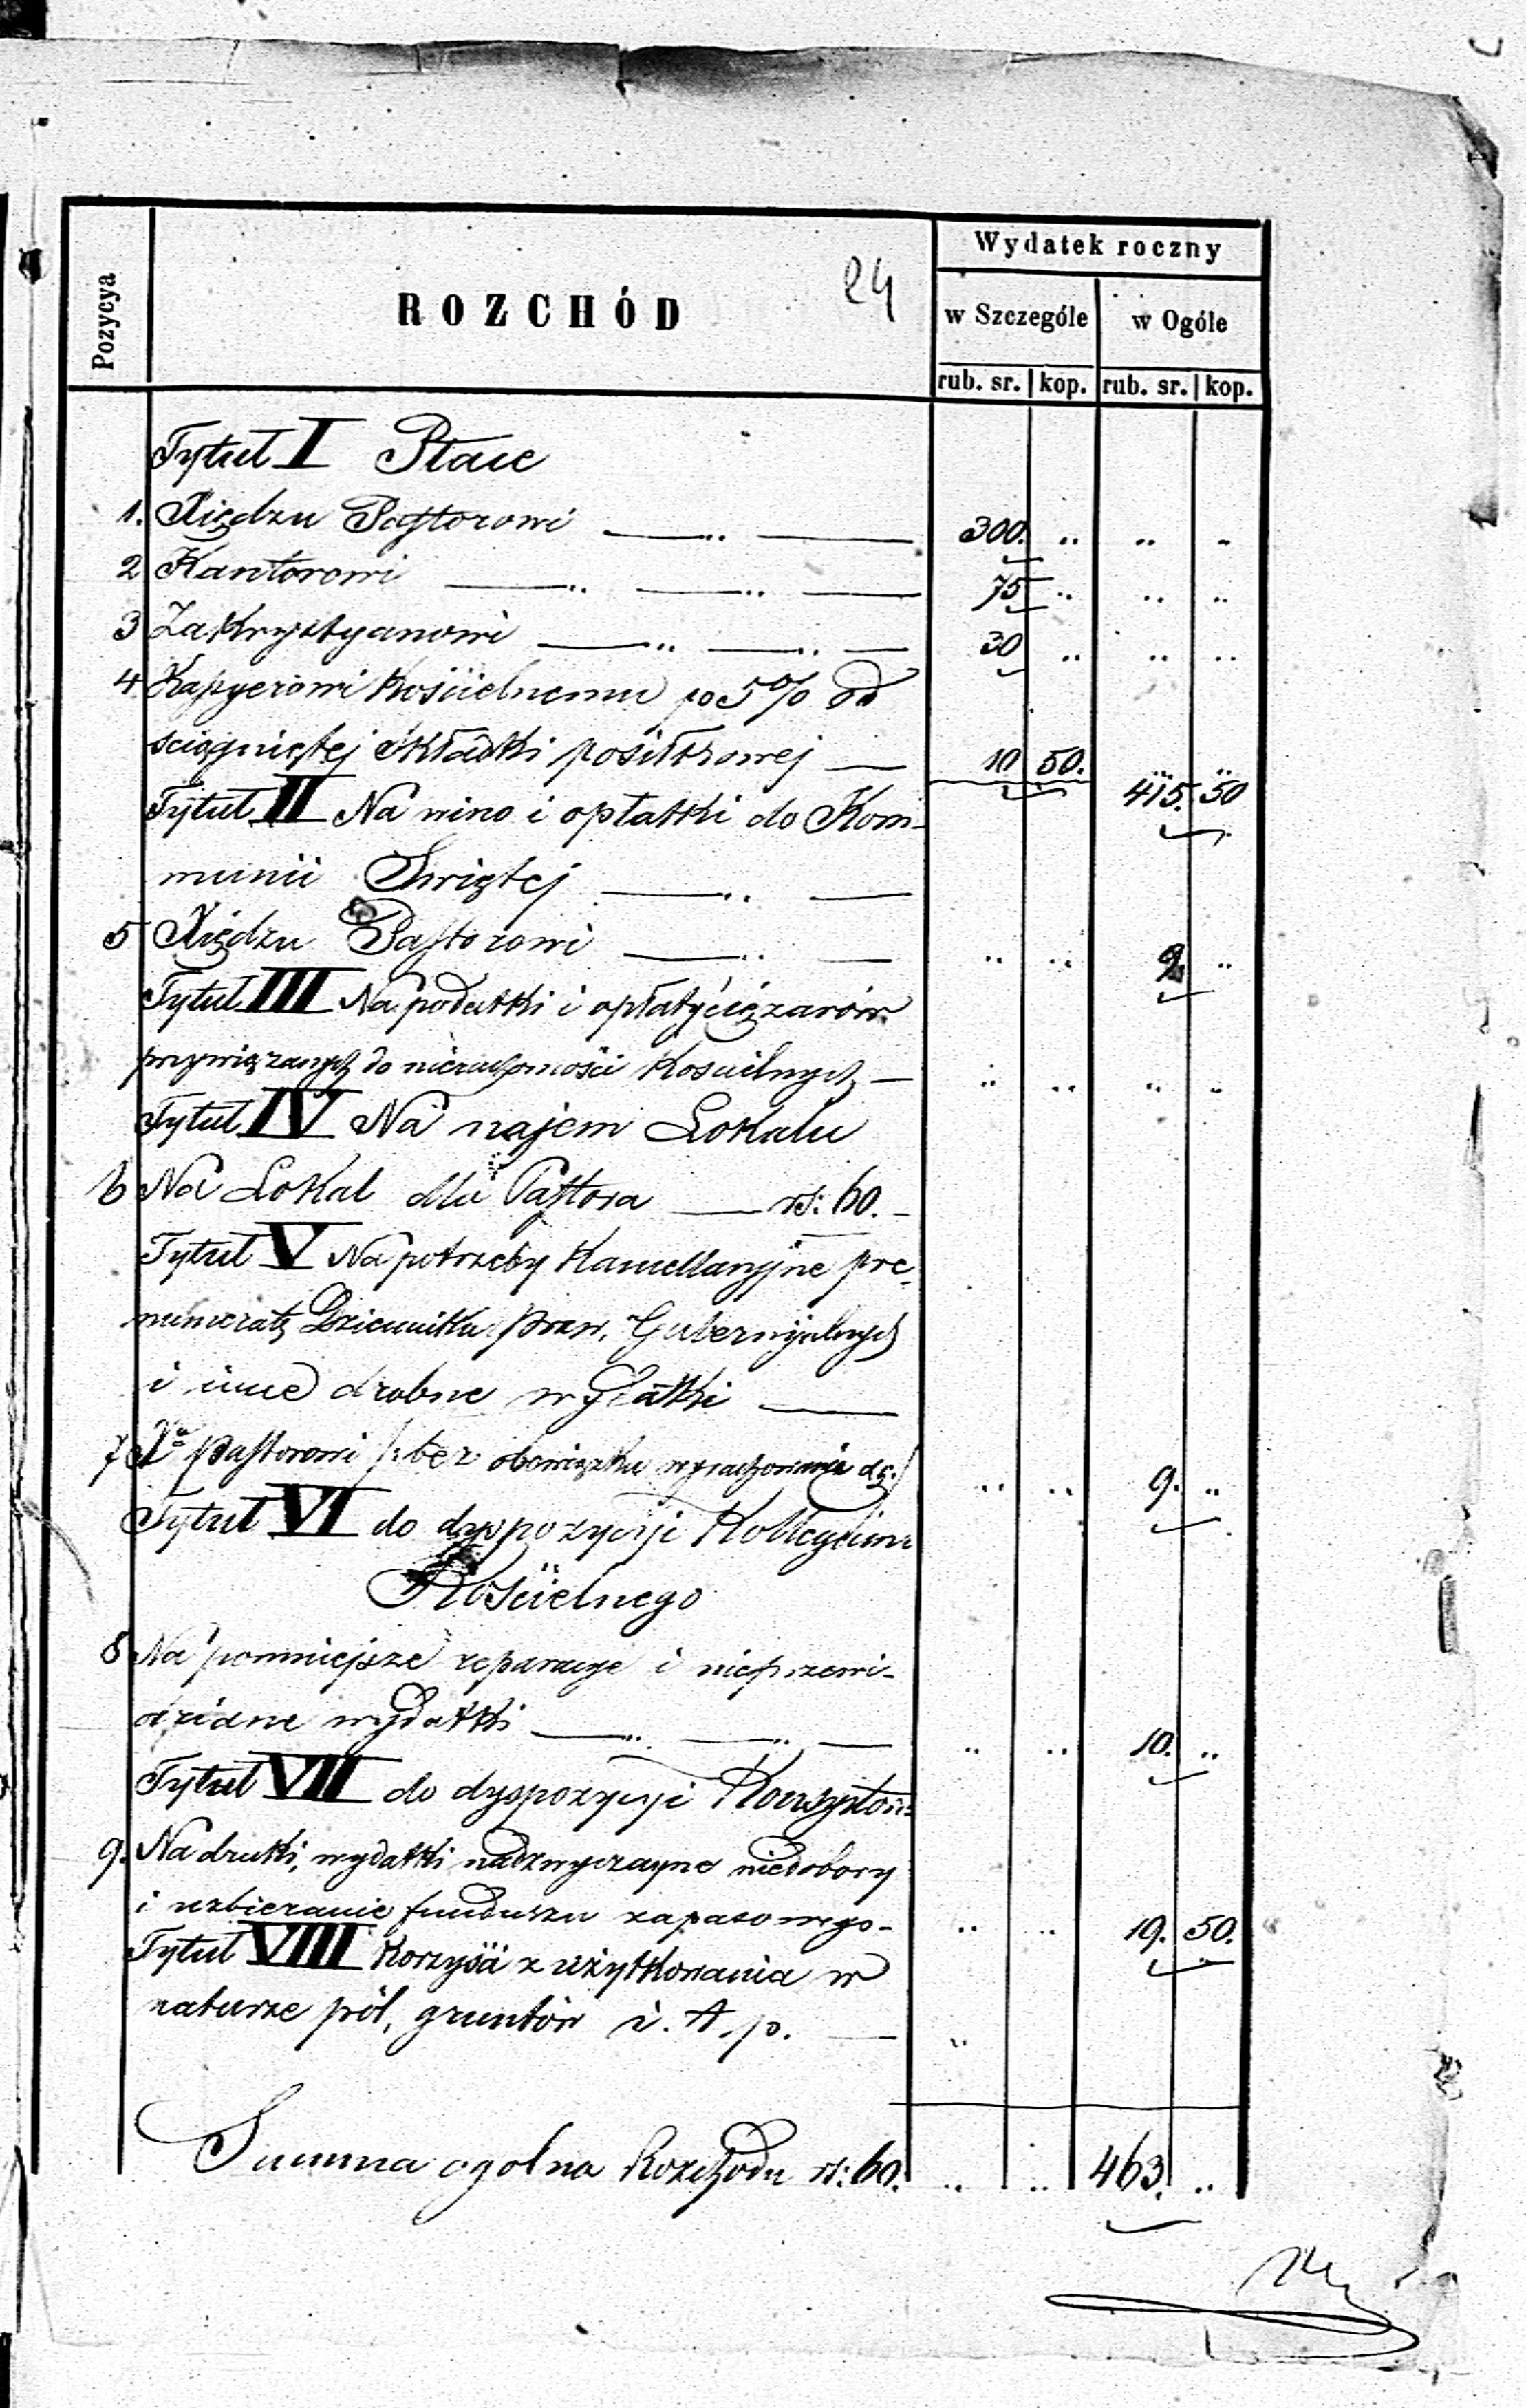 Wydatek roczny
Pozycya
ROZCHÓD
24
w Szczególe w Ogóle
rub. sr. kop. rub. sr. kop.
Tytuł I Płace
1. Xiędzu Pastorowi — „ — 300. „ „ „
2 Kantorowi — „ — „ — 75 „ „ „
3 Zakrystyanowi — „ — „ — 30 „ „ „
4 Kassyerowi Kościelnemu po 5% od
ściągniętej składki posiłkowej — 10 50. 415. 50
Tytuł II Na wino i opłatki do Kom-
munii Swiętej — „ —
5 Xiędzu Pastorowi — „ — „ „ 9 „
Tytuł III Na podatki i opłaty ciężarów
przywiązanych do nieruchomości Kościelnych — „ „ „ „
Tytuł IV Na najem Lokalu
6 Na Lokal dla Pastora — rs: 60. –
Tytuł V Na potrzeby Kancellaryjne pre-
numeratę Dziennika praw, Gubernijalnych
i inne drobne wydatki —
7 Xu Pastorowi /: bez obowiązku wyrachowania się :/ „ „ 9. „
Tytuł VI do dyspozycyi Kollegium
Kościelnego
8 Na pomniejsze reparacye i nieprzewi-
dziane wydatki — „ — „ — „ „ 10. „
Tytuł VII do dyspozycyi Konsystorz:
9. Na druki, wydatki nadzwyczayne niedobory
i uzbieranie funduszu zapasowego – „ „ 19. 50.
Tytuł VIII Korzyści z użytkowania w
naturze pól, gruntów i. t. p. — „
Summa ogolna Rozchodu rs: 60. „ „ 463. „